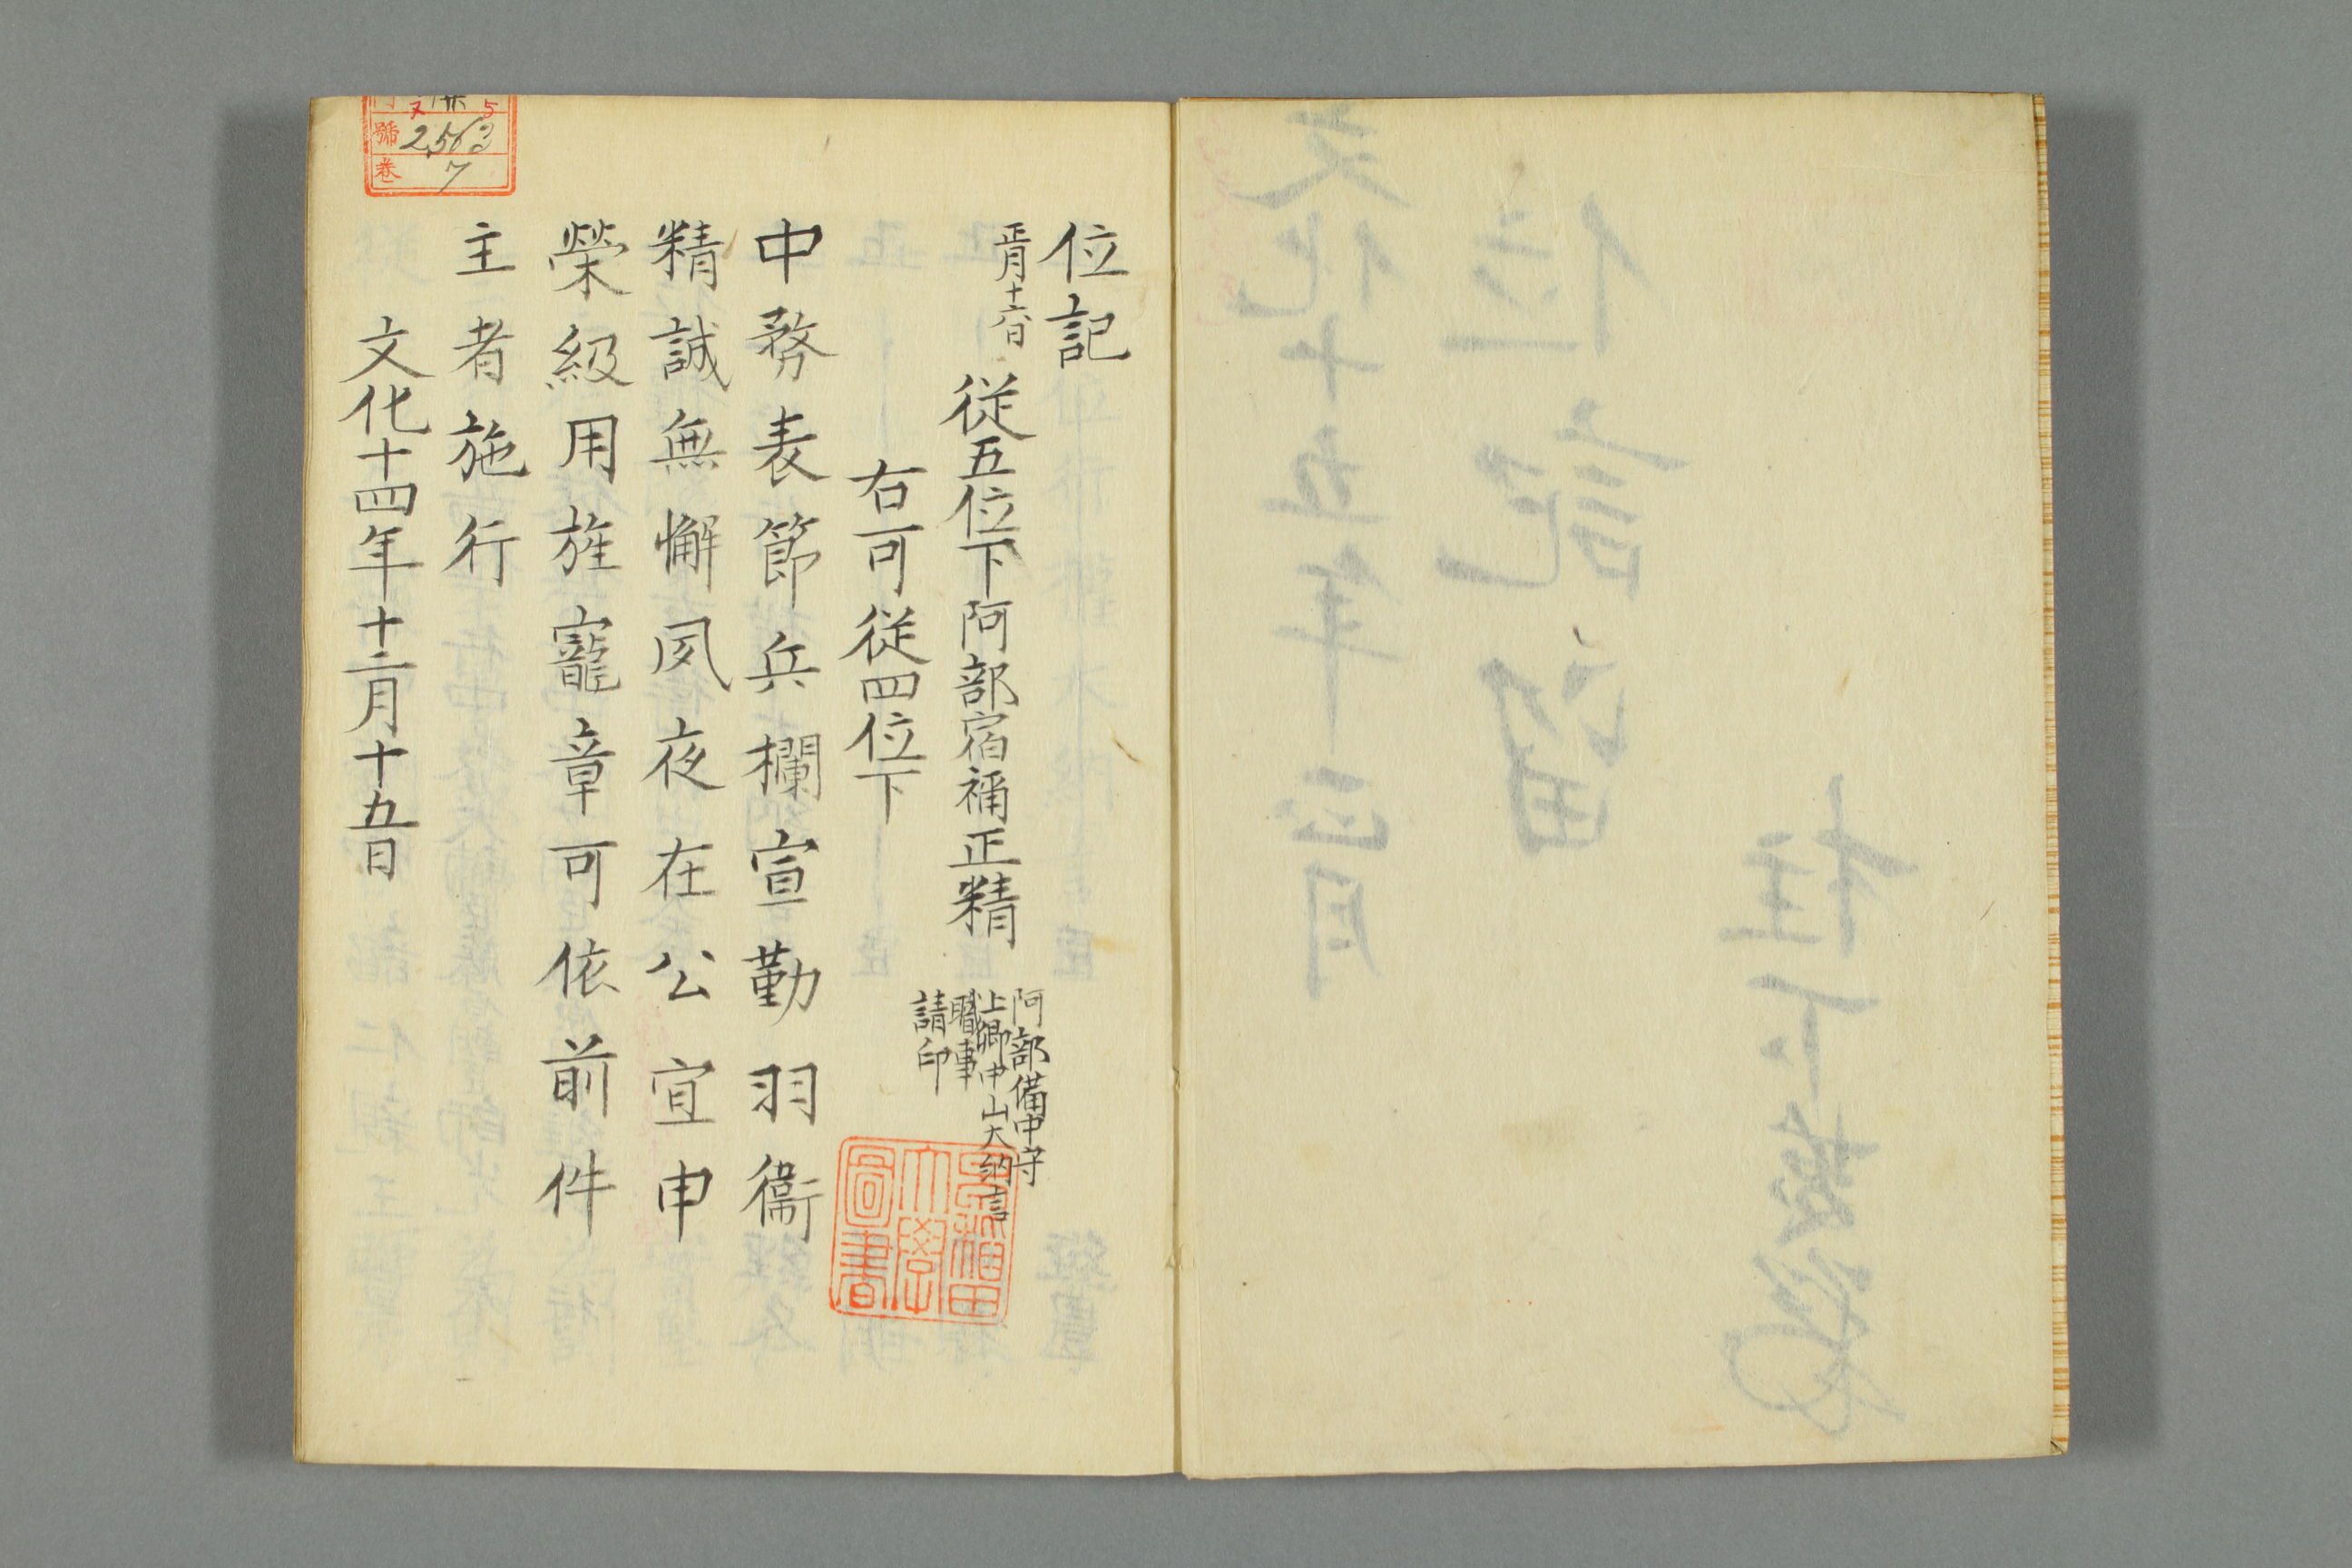 位記
正月十六日
従五位下阿部宿祢正精
阿部備中守
上卿中山大納言
職事
請印
右可従四位下
中務表節兵欄宣勤羽衞
精誠無懈夙夜在公宜申
榮級用旌寵章可依前件
主者施行
文化十四年十二月十五日
號 2,563
卷 7
早稲田大學圖書
位記留
文化十五年正月